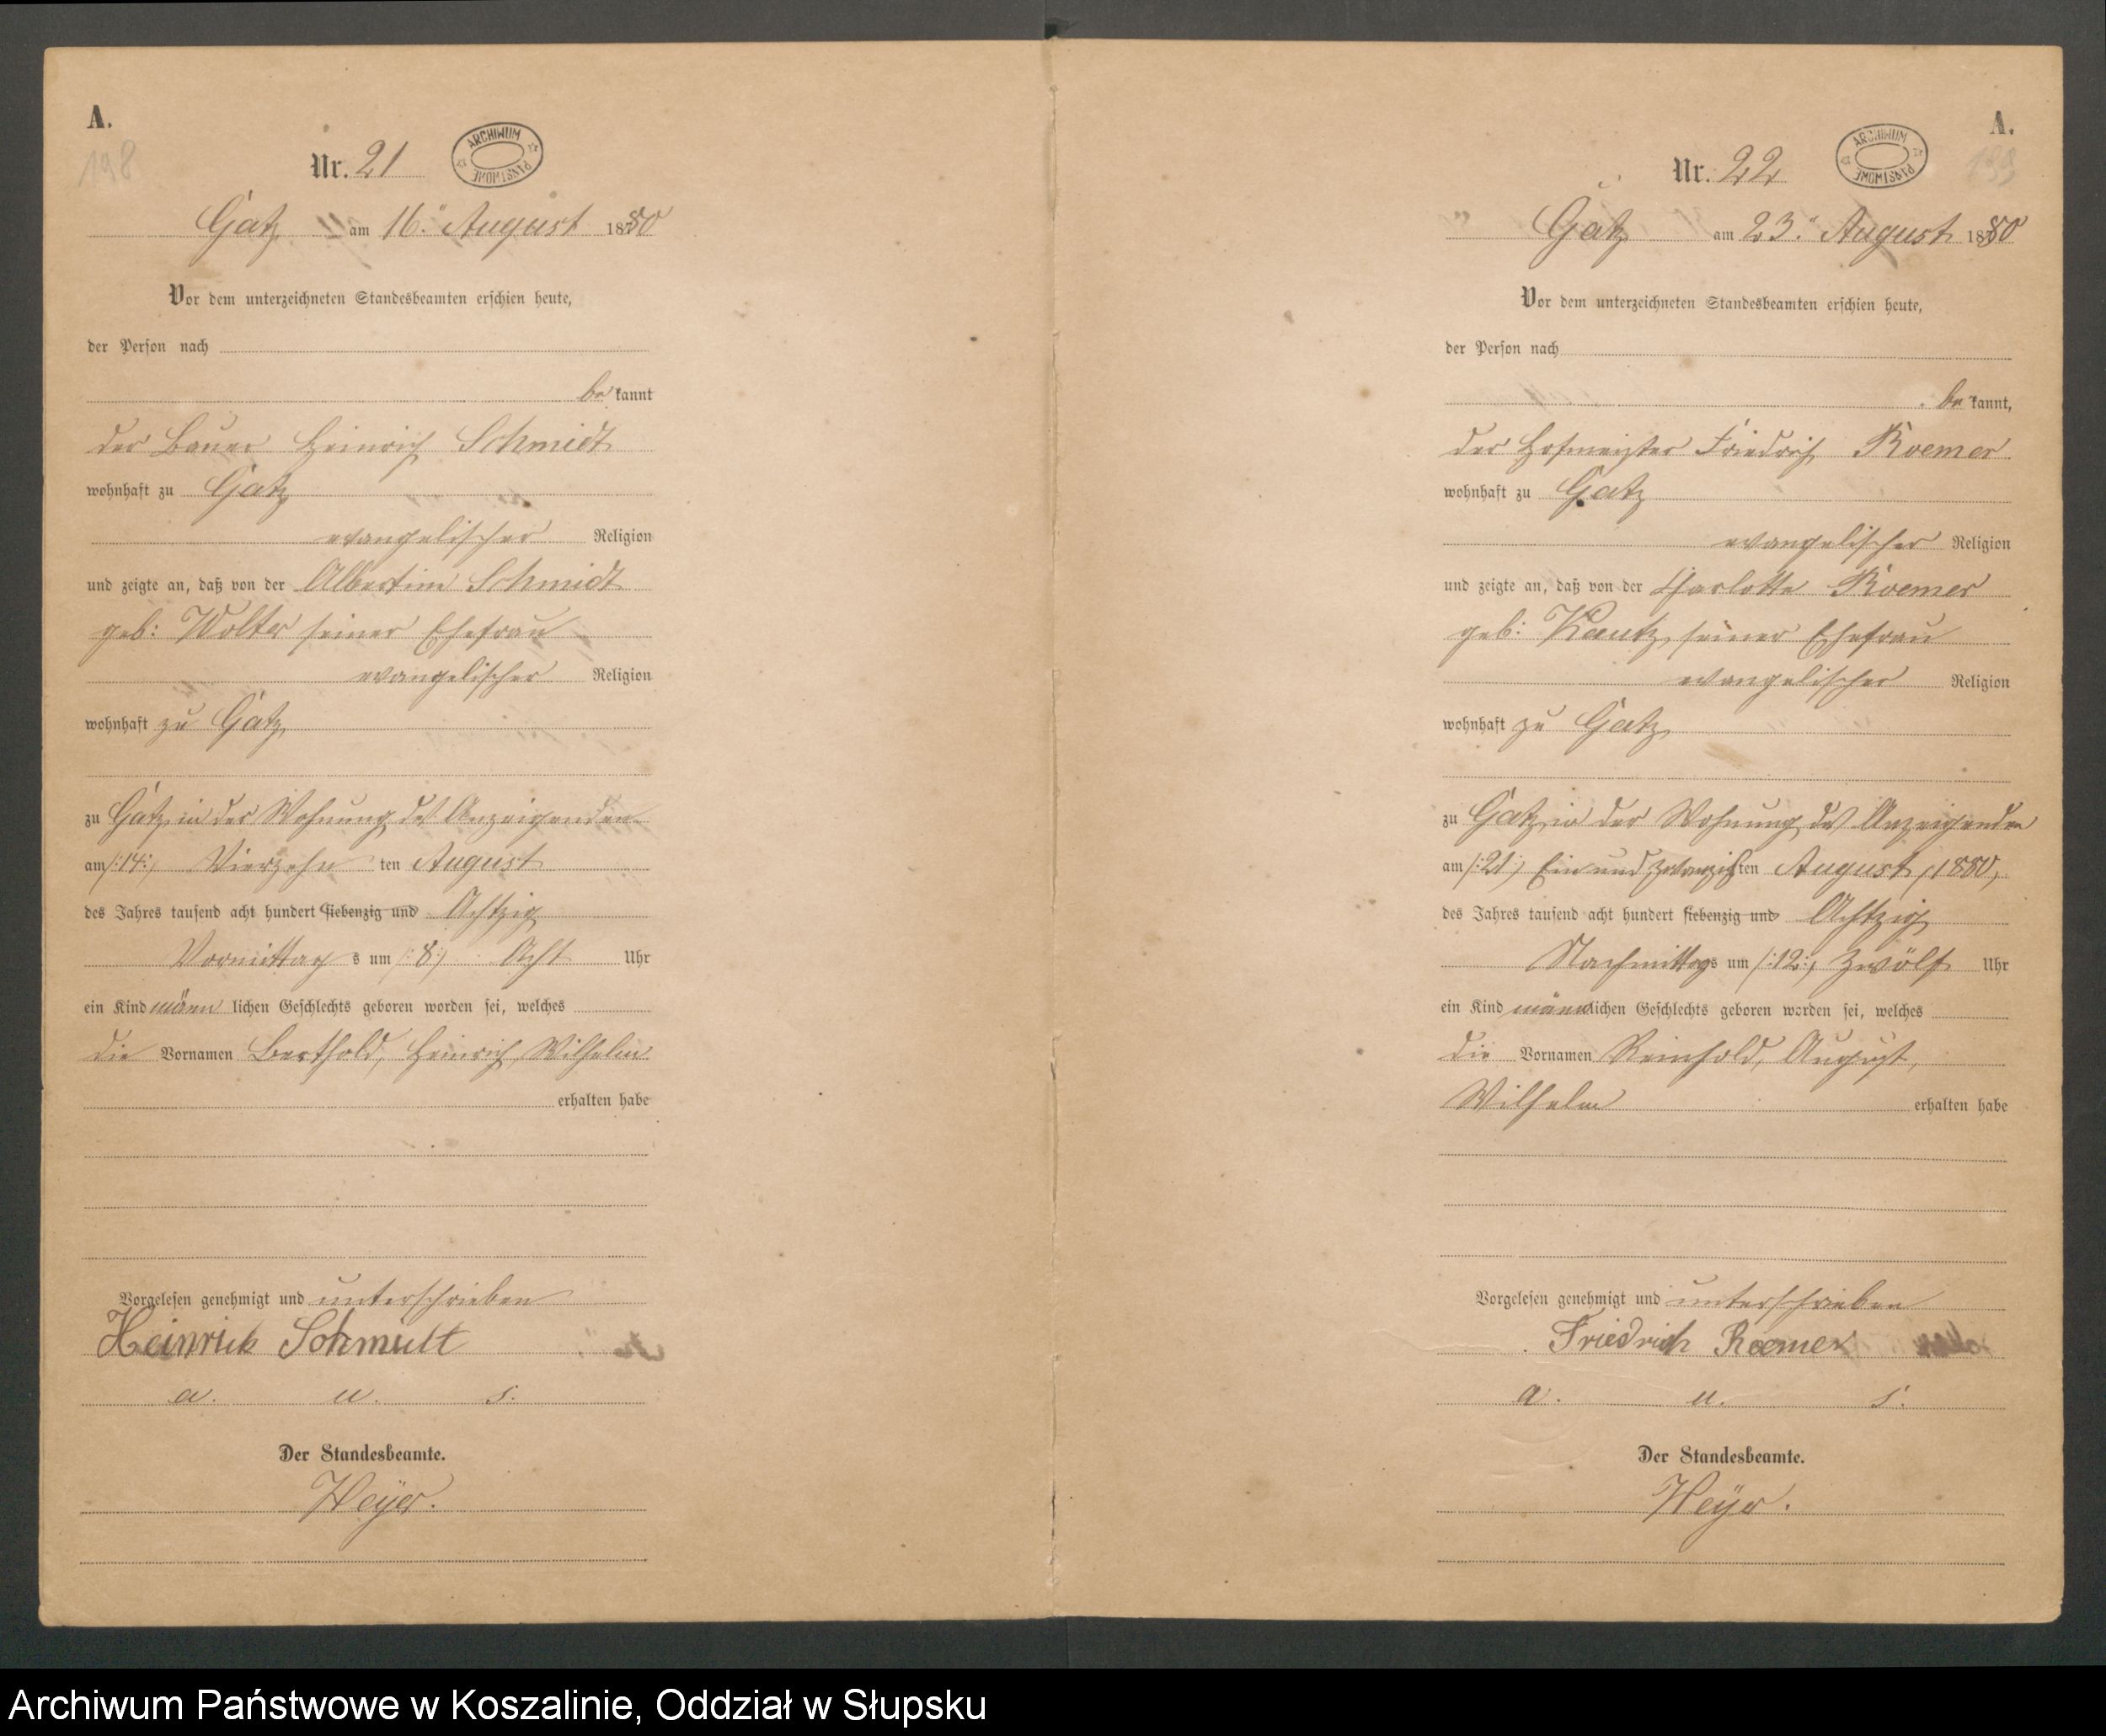 A.
198
Nr. 21
ARCHIWUM PAŃSTWOWE
Gatz am 16. August 1880
Vor dem unterzeichneten Standesbeamten erschien heute,
der Person nach
be kannt
der Bauer Heinrich Schmidt
wohnhaft zu Gatz
evangelischer Religion
und zeigte an, daß von der Albertine Schmidt
geb: Wolter seiner Ehefrau
evangelischer Religion
wohnhaft zu Gatz
zu Gatz in der Wohnung des Anzeigenden
am /:14:/ Vierzehn ten August
des Jahres tausend acht hundert siebenzig und Achtzig
Vormittag s um /:8:/ Acht Uhr
ein Kind männ lichen Geschlechts geboren worden sei, welches
die Vornamen Berthold, Heinrich, Wilhelm
erhalten habe
Vorgelesen genehmigt und unterschrieben
Heinrich Schmidt
a. u. s.
Der Standesbeamte.
Heyer.
A.
199
Nr. 22
ARCHIWUM PAŃSTWOWE
Gatz am 23. August 1880
Vor dem unterzeichneten Standesbeamten erschien heute,
der Person nach
be kannt,
der Hofmeister Friedrich Roemer
wohnhaft zu Gatz
evangelischer Religion
und zeigte an, daß von der Charlotte Roemer
geb: Kautz, seiner Ehefrau
evangelischer Religion
wohnhaft zu Gatz
zu Gatz, in der Wohnung des Anzeigenden
am /:21:/ Ein und zwanzigsten August /1880/
des Jahres tausend acht hundert siebenzig und Achtzig
Nachmittags um /:12:/ Zwölf Uhr
ein Kind männlichen Geschlechts geboren worden sei, welches
die Vornamen Reinhold, August,
Wilhelm erhalten habe
Vorgelesen genehmigt und unterschrieben
Friedrich Roemer
a. u. s.
Der Standesbeamte.
Heyer.
Archiwum Państwowe w Koszalinie, Oddział w Słupsku